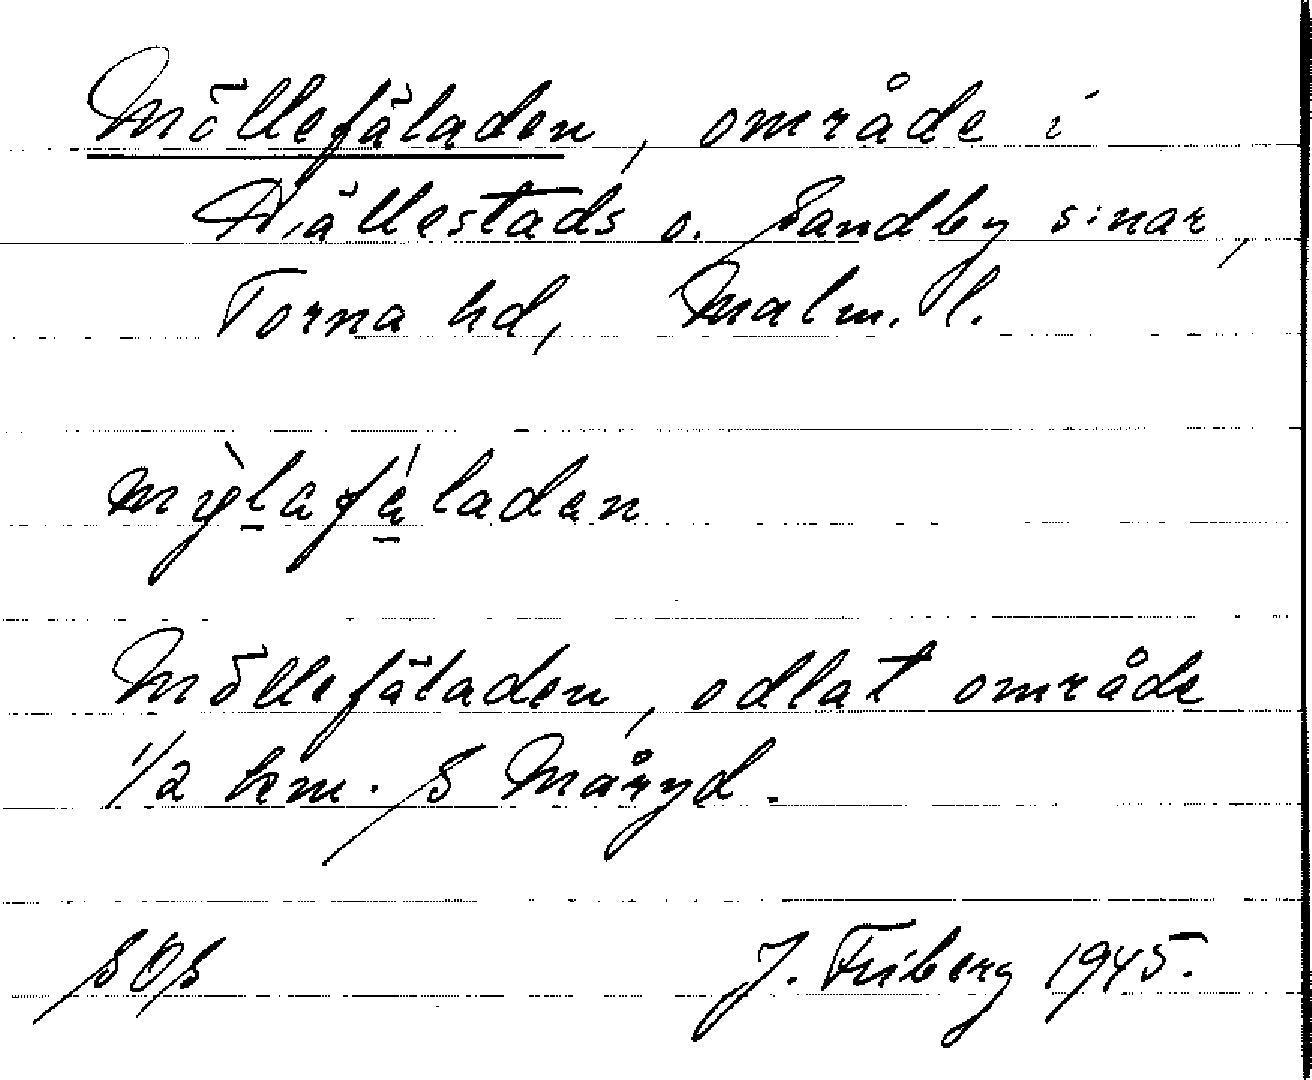 Möllefäladen, område i
Hällestads o. Sandby s:nar,
Torna hd, Malm. l.
Möllefäladen, odlat område
1/2 km. S Måryd.
SOS J. Friberg 1945.